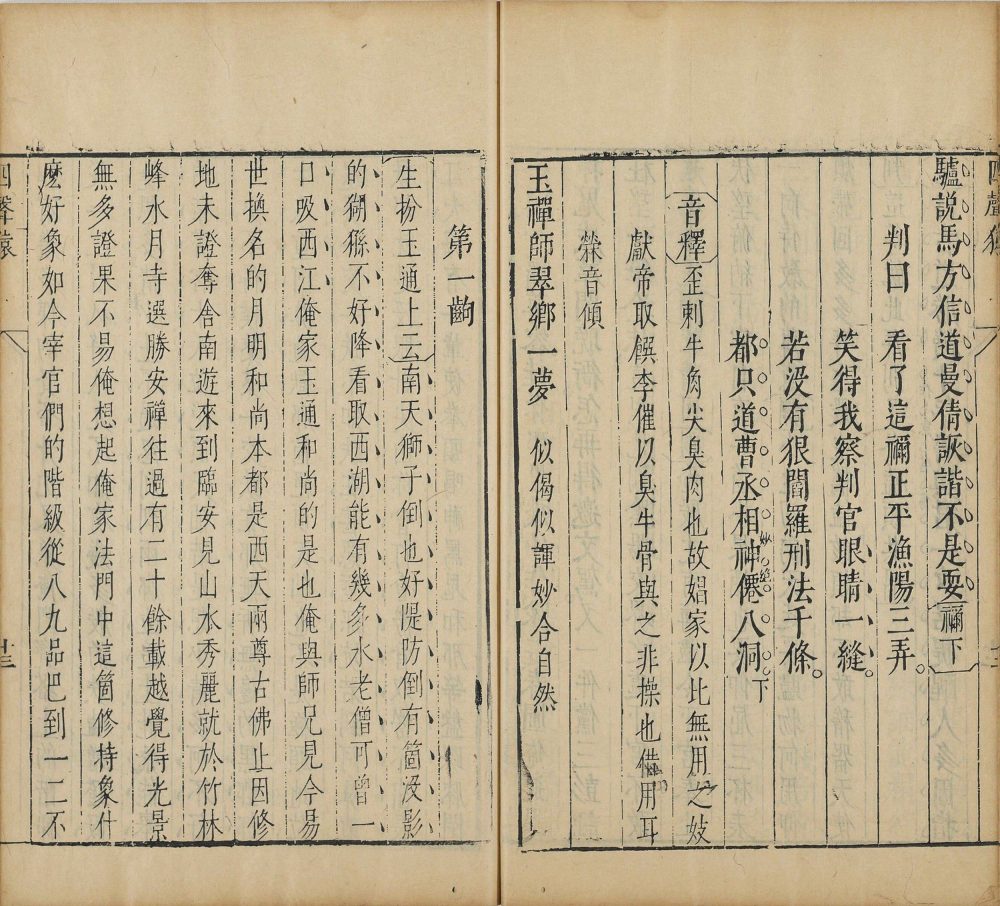 四聲猿
驢說馬方信道曼倩詼諧不是耍禰下
判曰 看了這禰正平漁陽三弄
笑得我察判官眼睛一縫
若沒有狠閻羅刑法千條
都只道曹丞相神僊八洞下
妙絶
音釋歪剌牛角尖臭肉也故娼家以比無用之妓
獻帝取饌李催以臭牛骨與之非操也借用耳
檾音傾
玉禪師翠鄉一夢 似偈似諢妙合自然
第一齣
生扮玉通上云南天獅子倒也好隄防倒有箇沒影
的猢猻不好降看取西湖能有幾多水老僧可曾一
口吸西江俺家玉通和尚的是也俺與師兄見今易
世換名的月明和尚本都是西天兩尊古佛止因修
地未證奪舍南遊來到臨安見山水秀麗就於竹林
峰水月寺選勝安禪往過有二十餘載越覺得光景
無多證果不易俺想起俺家法門中這箇修持象什
麼好象如今宰官們的階級從八九品巴到一二不
四聲猿
廿三